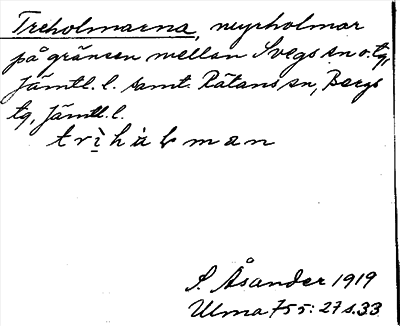 Treholmarna, myrholmar
på gränsen mellan Svegs sn o. tg,
Jämtl. l. samt Rätans sn, Bergs
tg, Jämtl. l.
S. Åsander 1919
Ulma 755: 27 s. 33